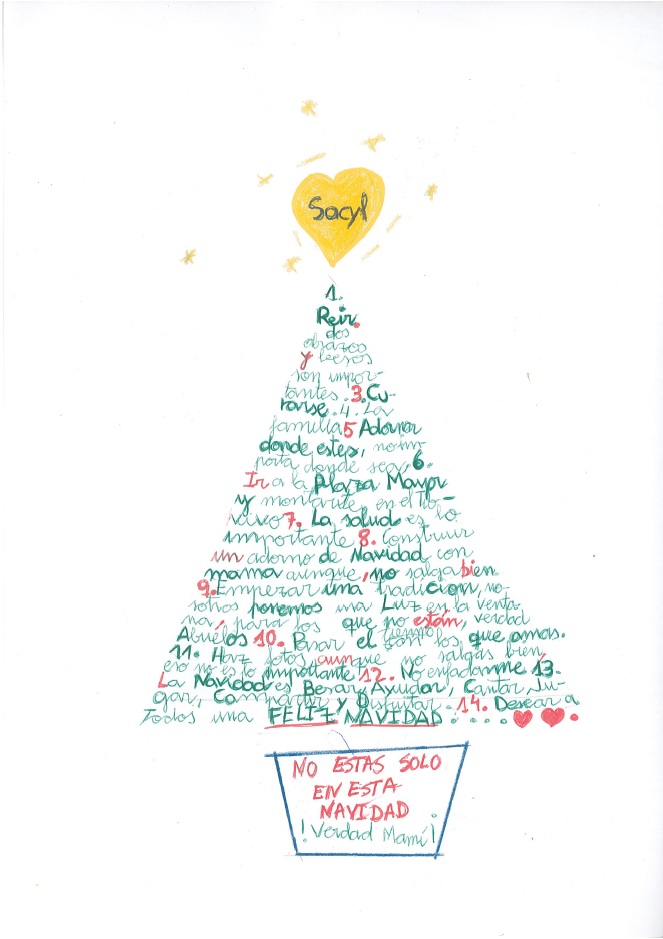 Sacyl
1.
Reir.
dos
abrazos
y besos
son impor-
tantes. 3.Cu-
rarse. 4. La
familia 5 Adornar
donde estes, no im-
porta donde sea, 6.
Ir a la Plaza Mayor
y montarte, en el Tio-
vivo 7. La salud es lo
importante 8. Construir
un adorno de Navidad con
mama aunque, no salga bien.
9. Empezar una tradicion, no-
sotros ponemos una Luz en la venta-
na, para los que no están, verdad
Abuelos 10. Pasar el tiempo con los que amas.
11. Haz fotos, aunque no salgas bien,
eso no es lo importante 12. No enfadarme 13.
La Navidad es Besar, Ayudar, Cantar, Ju-
gar, Compartir y Disfrutar. 14. Desear a
Todos una FELIZ NAVIDAD.....
NO ESTAS SOLO
EN ESTA
NAVIDAD
¡Verdad Mamí!